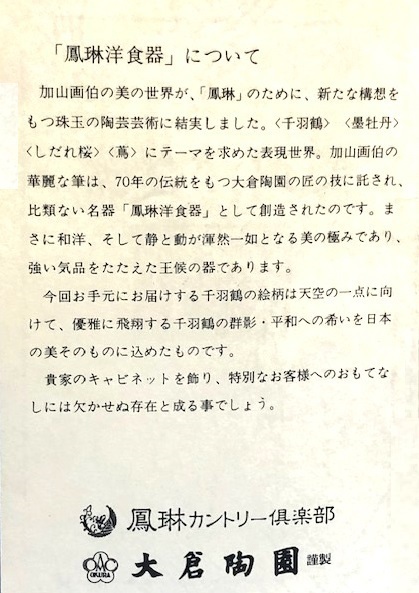 「鳳琳洋食器」について
加山画伯の美の世界が、「鳳琳」のために、新たな構想を
もつ珠玉の陶芸芸術に結実しました。〈千羽鶴〉〈墨牡丹〉
〈しだれ桜〉〈蔦〉にテーマを求めた表現世界。加山画伯の
華麗な筆は、70年の伝統をもつ大倉陶園の匠の技に託され、
比類ない名器「鳳琳洋食器」として創造されたのです。ま
さに和洋、そして静と動が渾然一如となる美の極みであり、
強い気品をたたえた王侯の器であります。
今回お手元にお届けする千羽鶴の絵柄は天空の一点に向
けて、優雅に飛翔する千羽鶴の群影・平和への希いを日本
の美そのものに込めたものです。
貴家のキャビネットを飾り、特別なお客様へのおもてな
しには欠かせぬ存在と成る事でしょう。
鳳琳カントリー倶楽部
OKURA 大倉陶園 謹製